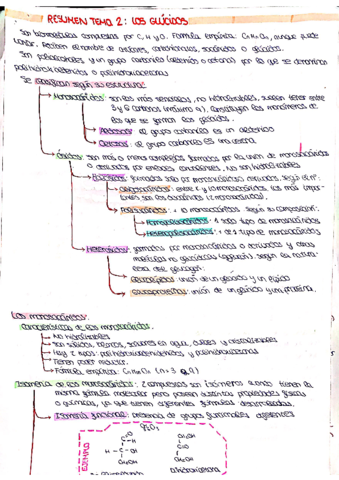 RESUMEN TEMA 2: LOS GLÚCIDOS
Son biomoléculas compuestas por C, H y O. Fórmula empírica: CnH2nOn, aunque puede
variar. Reciben el nombre de azúcares, carbohidratos, sacáridos o glúcidos.
Son polialcoholes, y un grupo carbonilo (aldehído o cetona) por lo que se denominan
polihidroxialdehídos o polihidroxicetonas
Se clasifican según su estructura:
Monosacáridos: son los más sencillos, no hidrolizables, suelen tener entre
3 y 8 carbonos (máximo 9), constituyen los monómeros de
los que se forman los glúcidos.
Aldosas: el grupo carbonilo es un aldehído
Cetosas: el grupo carbonilo es una cetona.
Ósidos: son más o menos complejos, formados por la unión de monosacáridos
o derivados por enlaces covalentes, ya son hidrolizables.
Holósidos: formados solo por monosacáridos, según nº:
Oligosacáridos: entre 2 y 10 monosacáridos, los más impor-
tantes son los disacáridos (2 monosacáridos).
Polisacáridos: + 10 monosacáridos. Según su composición:
Homopolisacáridos: 1 solo tipo de monosacáridos
Heteropolisacáridos: + de 1 tipo de monosacáridos
Heterósidos: formados por monosacáridos o derivados y otras
moléculas no glucídicas (aglucón). Según la natura-
leza del aglucón:
Glucolípidos: unión de un glúcido y un lípido
Glucoproteínas: unión de un glúcido y una proteína.
Los monosacáridos:
Características de los monosacáridos:
No hidrolizables
Son sólidos, blancos, solubles en agua, dulces y cristalizables
Hay 2 tipos: polihidroxialdehídos y polihidroxicetonas
Tienen poder reductor.
Fórmula empírica: CnH2nOn (n = 3 a 9)
Isomería de los monosacáridos: 2 compuestos son isómeros cuando tienen la
misma fórmula molecular pero poseen distintas propiedades físicas
o químicas, ya que tienen diferentes fórmulas desarrolladas.
Isomería funcional: presencia de grupos funcionales diferentes
EJEMPLO
CH2OH
H - C - OH
C=O
CH2OH
CH2OH
dihidroxiacetona